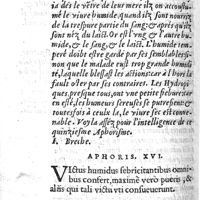 ia dés le vẽtre de leur mere ilz on accoustu-
mé le viure humide, quand ilz sont nourriz
de la trespure partie du sang & aprés qu'ilz
sont néz du laict. Or est l'vng & l'autre hu-
mide, & le sang, & le laict. L'humide tem-
peré doibt estre gardé par ses semblables
non que le malade ruſt trop grande humidi-
té, laquelle blessast les actions: car à l'hors la
faut oster par ses contraires. Les Hydropi-
ques presque tous, ont vne petite fiebure
en est, les humeurs sereuses se putrefient: &
toutesfois à ceulx la, le viure humide est co
traire. Voy la assez pour l'intelligence de ce
quinziesme Aphorisme.
b. Brethe.
APHORIS. XVI.
VIctus humidus febricitantibus omni-
bus confert, maximè verò pueris, &
aliis qui tali victu vti consueuerunt.